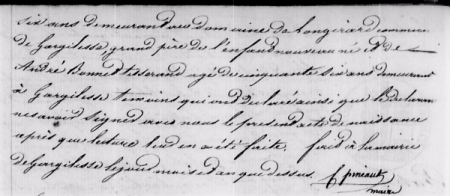 six ans demeurant au domaine de Longirard commune
de Gargilesse, grand père de l'enfant nouveau né et de
André Bonnet tisserand agé de cinquante six ans demeurant
à Gargilesse temoins qui ont declaré ainsi que le declarant
ne savoir signer avec nous le present acte de naissance
après que lecture leur en a été faite. fait à la mairie
de Gargilesse les jour mois et an que dessus.
maire